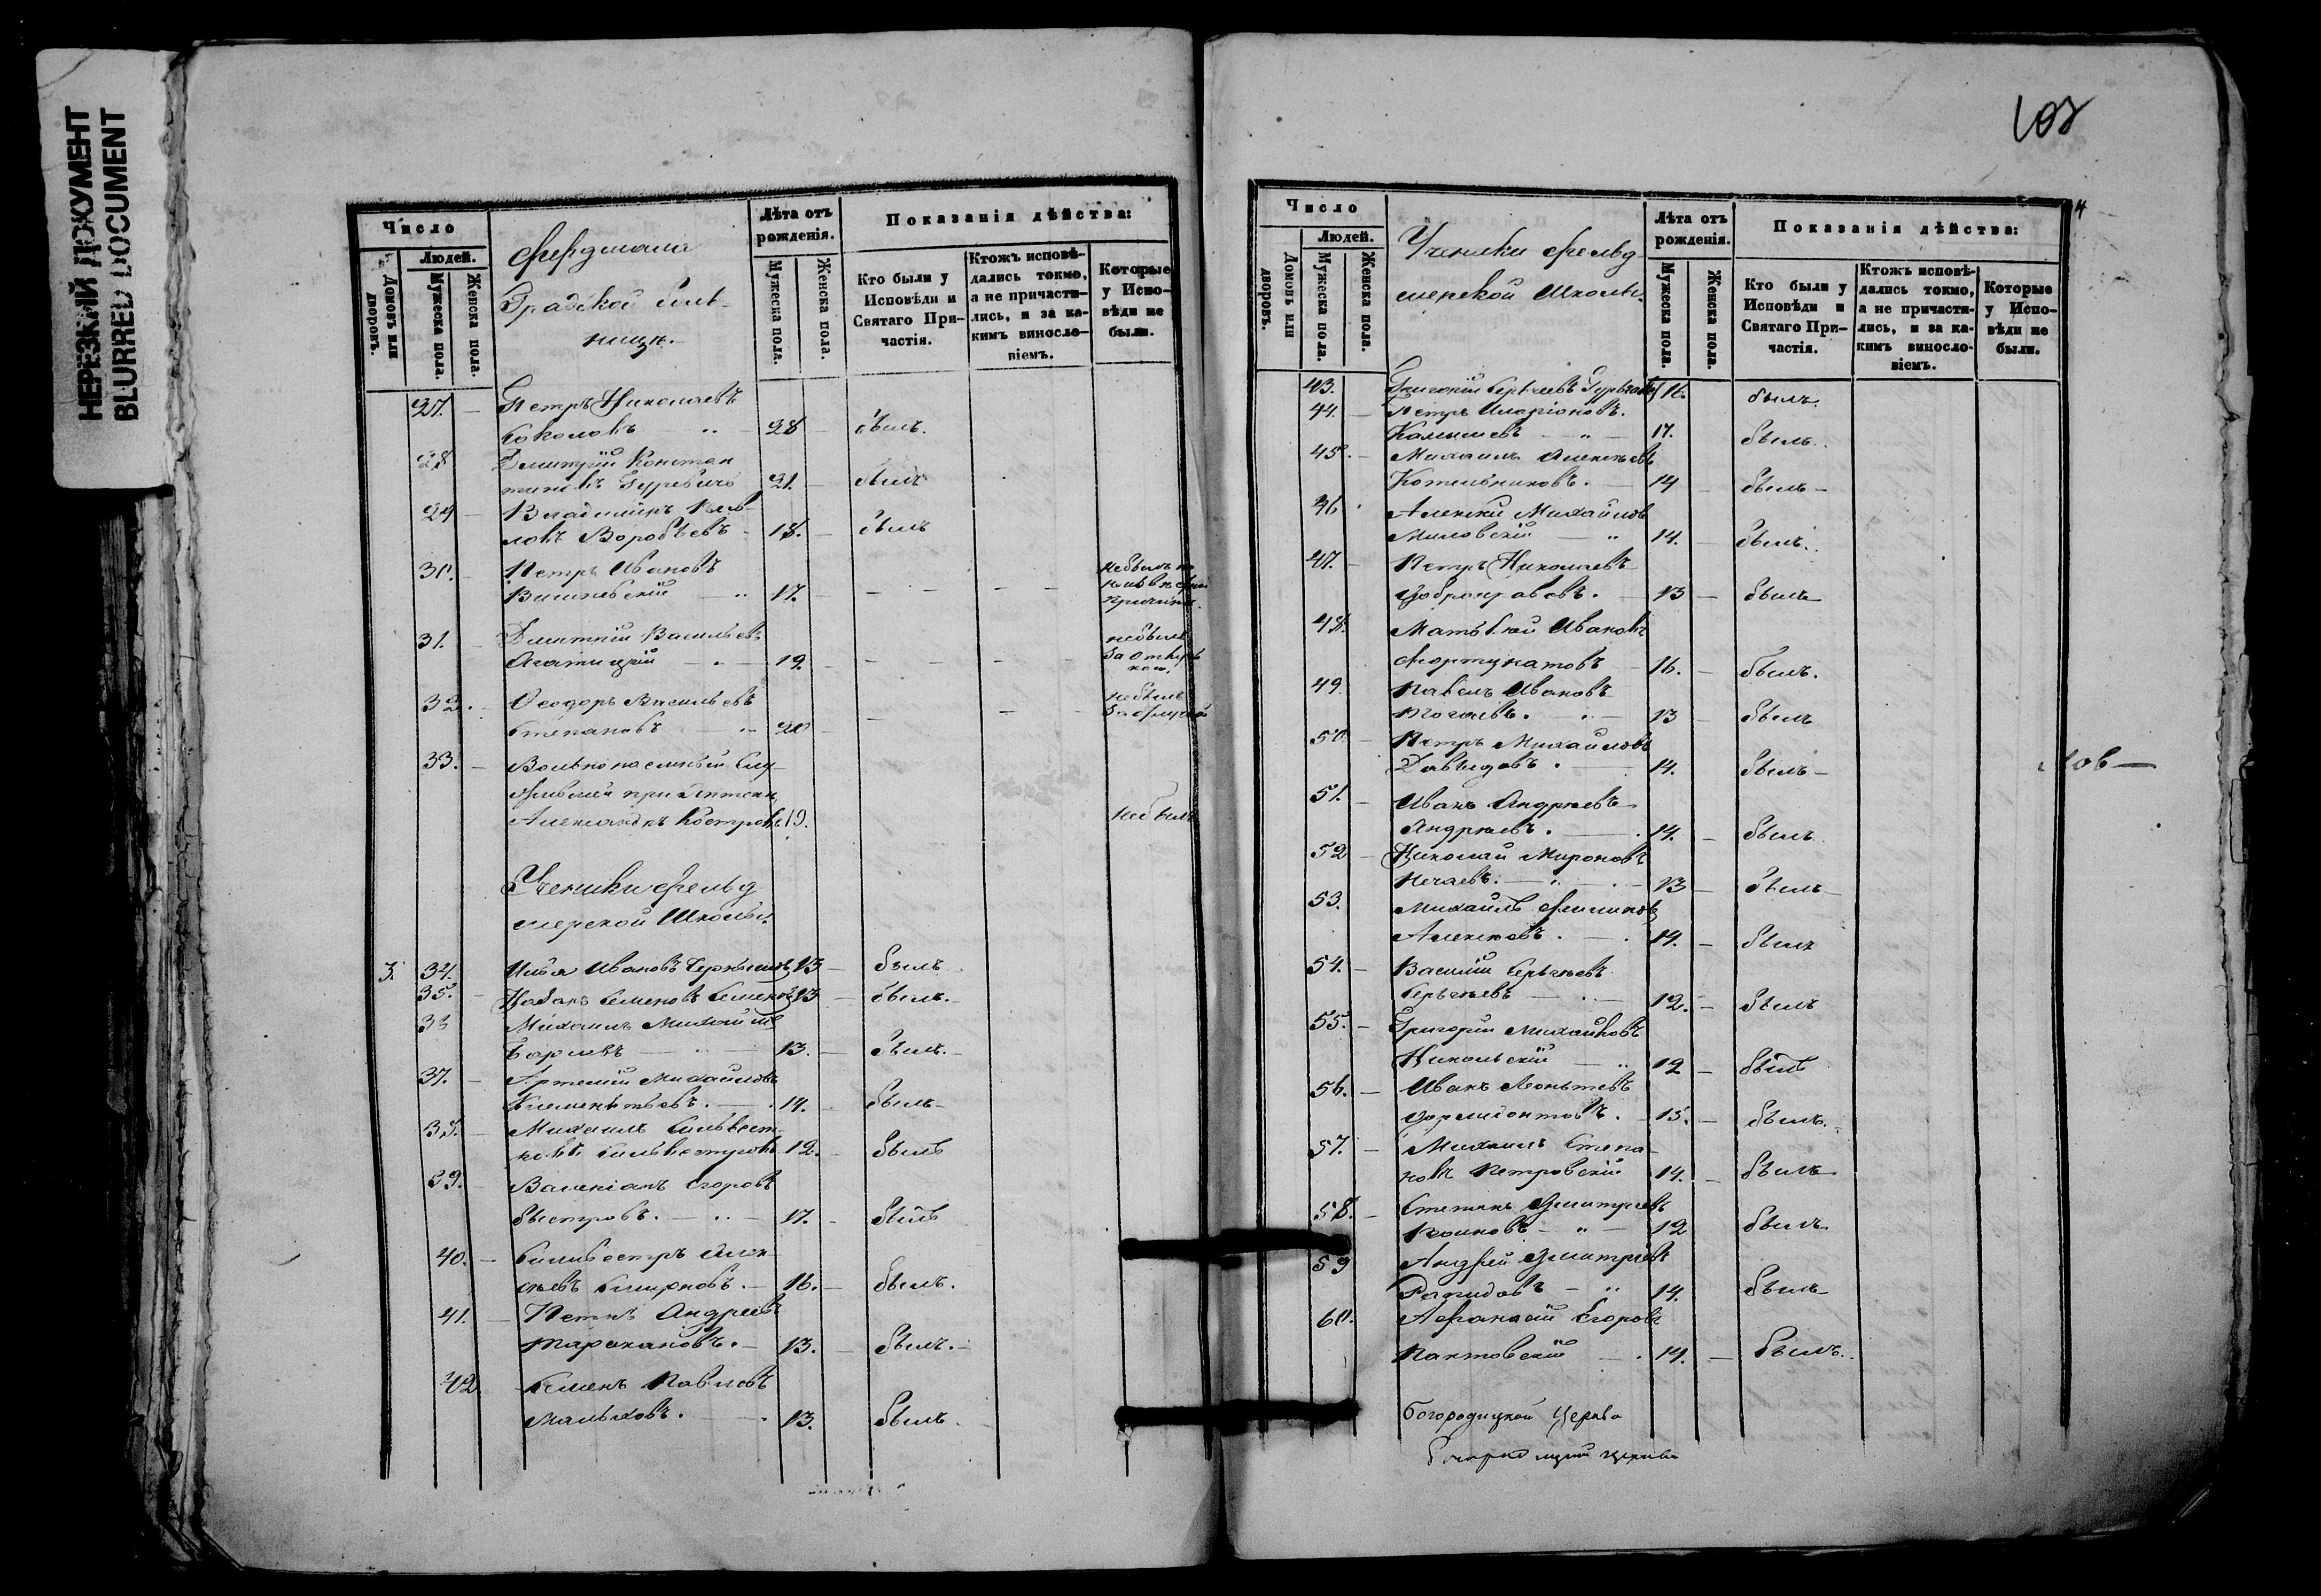 НЕРЕЗКИЙ ДОКУМЕНТ
BLURRED DOCUMENT
Число
Людей.
Домовъ или дворовъ.
Мужеска пола.
Женска пола.
Градской боль-
ницы.
Лѣта отъ рожденія.
Мужеска пола.
Женска пола.
Показанія дѣйства:
Кто были у Исповѣди и Святаго При-частія.
Ктожъ исповѣ-дались токмо, а не причасти-лись, и за ка-кимъ винос­ло-віемъ.
Которые у Испо-вѣди не были.
27. Петръ Николаевъ
Соколовъ 28 былъ.
28 Дмитрій Констан
тиновъ Гуревичъ 21. былъ
29 Владиміръ Пав-
ловъ Воробьевъ 18. былъ
30. Петръ Ивановъ
Вишневскій 17.
не былъ по
31. Дмитрій Васильевъ
19. не былъ
32. Ѳеодоръ Васильевъ
Степановъ 20 не былъ
33. Вольнонаемный слу-
жившій при Аптекѣ
Александръ Костровъ 19. не былъ
Ученики фельд
шерской Школы.
3. 34. Илья Ивановъ 13 былъ
35. Семеновъ Семеновъ 13 былъ.
36 Михаилъ Михайловъ
13. былъ.
37. Артемій Михайловъ
Клементьевъ. 14. былъ
38. Михаилъ Сильвест-
ровъ Сильвестровъ 12. былъ
39. Валеріанъ Егоровъ
Быстровъ. 17. былъ
40. Сильвестръ Алек-
сѣевъ Смирновъ. 16. былъ.
41. Петръ Андреевъ
Таракановъ. 13. былъ.
42 Семенъ Павловъ
Мальховъ. 13. былъ.
103
Число
Людей.
Домовъ или дворовъ.
Мужеска пола.
Женска пола.
Ученики фельд-
шерской Школы.
Лѣта отъ рожденія.
Мужеска пола.
Женска пола.
Показанія дѣйства:
Кто были у Исповѣди и Святаго При-частія.
Ктожъ исповѣ-дались токмо, а не причасти-лись, и за ка-кимъ винос­ло-віемъ.
Которые у Испо-вѣди не были.
43. Григорій Сергѣевъ 16. былъ.
44. Петръ Иларіоновъ
Камышевъ 17. былъ.
45. Михаилъ Алексѣевъ
Котельниковъ. 14 былъ
46. Алексѣй Михайловъ
Миловскій 14. былъ.
47. Петръ Николаевъ
Добронравовъ. 13 былъ
48. Матвѣй Ивановъ
Фортунатовъ 16. былъ.
49. Павелъ Ивановъ
13 былъ
50. Петръ Михайловъ
Давыдовъ. 14. былъ
51. Иванъ Андреевъ
Андреевъ. 14. былъ
52 Николай Мироновъ
Нечаевъ. 13 былъ
53. Михаилъ
Алексѣевъ. 14. былъ
54. Василій Сергѣевъ
Сергѣевъ 12. былъ
55. Григорій Михайловъ
Никольскій 12 былъ
56. Иванъ Леонтьевъ
Дормидонтовъ. 15. былъ.
57. Михаилъ Степа-
новъ Петровскій 14. былъ
58. Степанъ Дмитріевъ
12 былъ
59 Андрей Дмитріевъ
14. былъ
60. Аѳанасій Егоровъ
14. былъ.
лов
Богородицкой Церкви
Богородицкой церкви